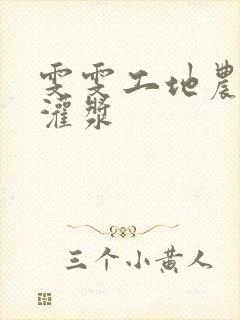 雯雯工地農
灌漿
三个小黄人